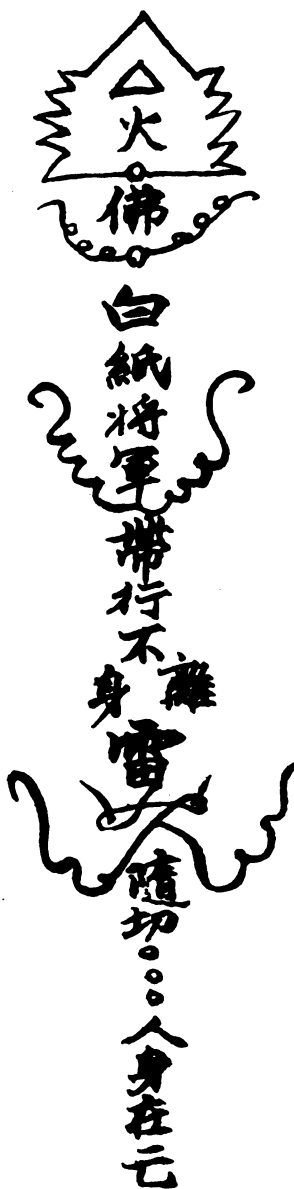 火
佛
白紙将軍
帶行不離身
雷
隨切
人身在